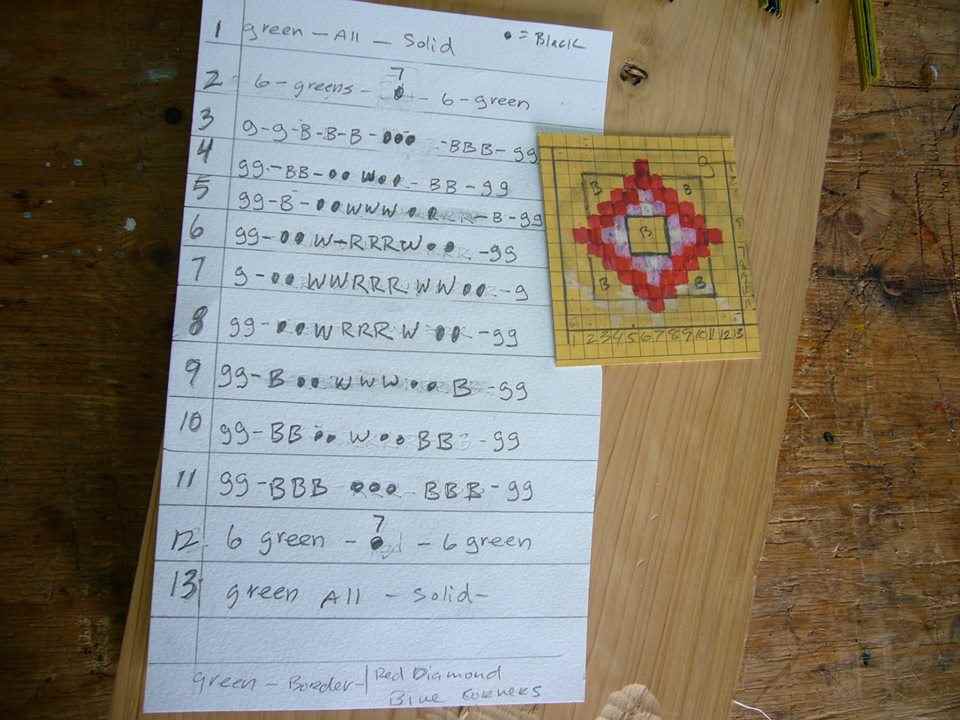 1 green - All - Solid • = Black
7
2 6 - greens - • - 6 - green
3 g-g-B-B-B-••• -BBB-gg
4 gg-BB-••W••-BB-gg
5 gg-B-••WWW••-B-gg
6 gg-••W-RRRW••-gg
7 g-••WWRRRWW••-g
8 gg-••WRRRW••-gg
9 gg-B••WWW••B-gg
10 gg-BB••W••BB-gg
11 gg-BBB•••BBB-gg
7
12 6 green - • - 6 green
13 green All - Solid-
green - Boarder - | Red Diamond
Blue Corners
g
B B
B
B B
2 3 4 5 6 7 8 9 10 11 12 13